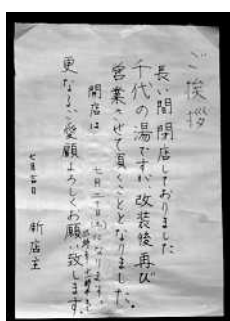 ご挨拶
長い間閉店しておりました
千代の湯ですが、改装後再び
営業させて頂くこととなりました。
開店は 七月二十日(月)になります。
更なるご愛顧よろしくお願い致します。
七月吉日
新店主